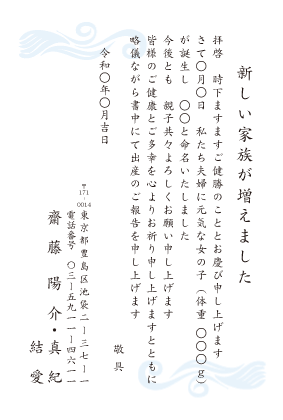 新しい家族が増えました
拝啓　時下ますますご健勝のこととお慶び申し上げます
さて〇月〇日　私たち夫婦に元気な女の子（体重　〇〇〇g）
が誕生し　〇〇と命名いたしました
今後とも　親子共々よろしくお願い申し上げます
皆様のご健康とご多幸を心よりお祈り申し上げますとともに
略儀ながら書中にて出産のご報告を申し上げます
敬具
令和〇年〇月吉日
〒171-0014
東京都豊島区池袋二ー三七ー一
電話番号　〇三ー五九一一ー四六一一
齋藤　陽介・真紀
結愛